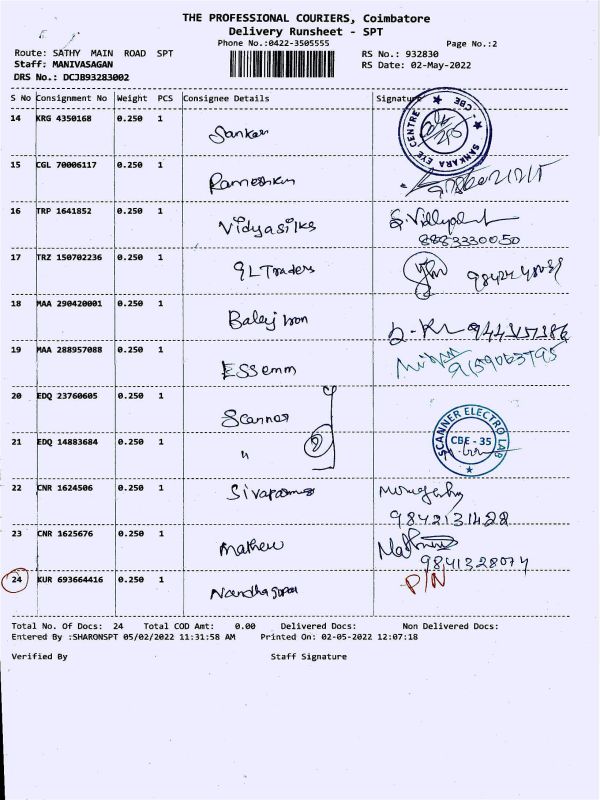 THE PROFESSIONAL COURIERS, Coimbatore
Delivery Runsheet - SPT
Phone No.:0422-3505555
Page No.:2
Route: SATHY MAIN ROAD SPT
RS No.: 932830
Staff: MANIVASAGAN
RS Date: 02-May-2022
DRS No.: DCJB93283002
S No Consignment No Weight PCS Consignee Details Signature
14 KRG 4350168 0.250 1 Sankar
SANKARA EYE CENTRE CBE
15 CGL 70006117 0.250 1 Rameshkumar
16 TRP 1641852 0.250 1 Vidyasilks
8883330050
17 TRZ 150702236 0.250 1 GL Traders
18 MAA 290420001 0.250 1 Balaji Iron
19 MAA 288957088 0.250 1 ESSemm
9159063795
20 EDQ 23760605 0.250 1 Scanner
21 EDQ 14883684 0.250 1 " 2
SCANNER ELECTRO LAB
CBE - 35
22 CNR 1624506 0.250 1
9842131428
23 CNR 1625676 0.250 1 Mathew
9841328074
24 KUR 693664416 0.250 1 Nandhagopal P/N
Total No. Of Docs: 24 Total COD Amt: 0.00 Delivered Docs: Non Delivered Docs:
Entered By :SHARONSPT 05/02/2022 11:31:58 AM Printed On: 02-05-2022 12:07:18
Verified By Staff Signature